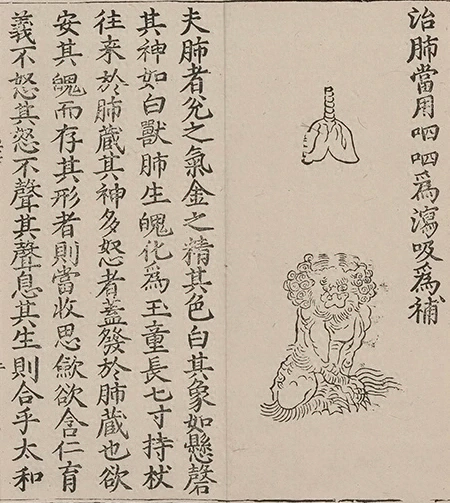 治肺當用呬呬爲瀉吸爲補
夫肺者兊之氣金之精其色白其象如懸磬
其神如白獸肺生魄化爲玉童長七寸持杖
往来於肺藏其神多怒者蓋發於肺藏也欲
安其魄而存其形者則當收思歛欲含仁育
義不怒其怒不聲其聲息其生則合乎太和